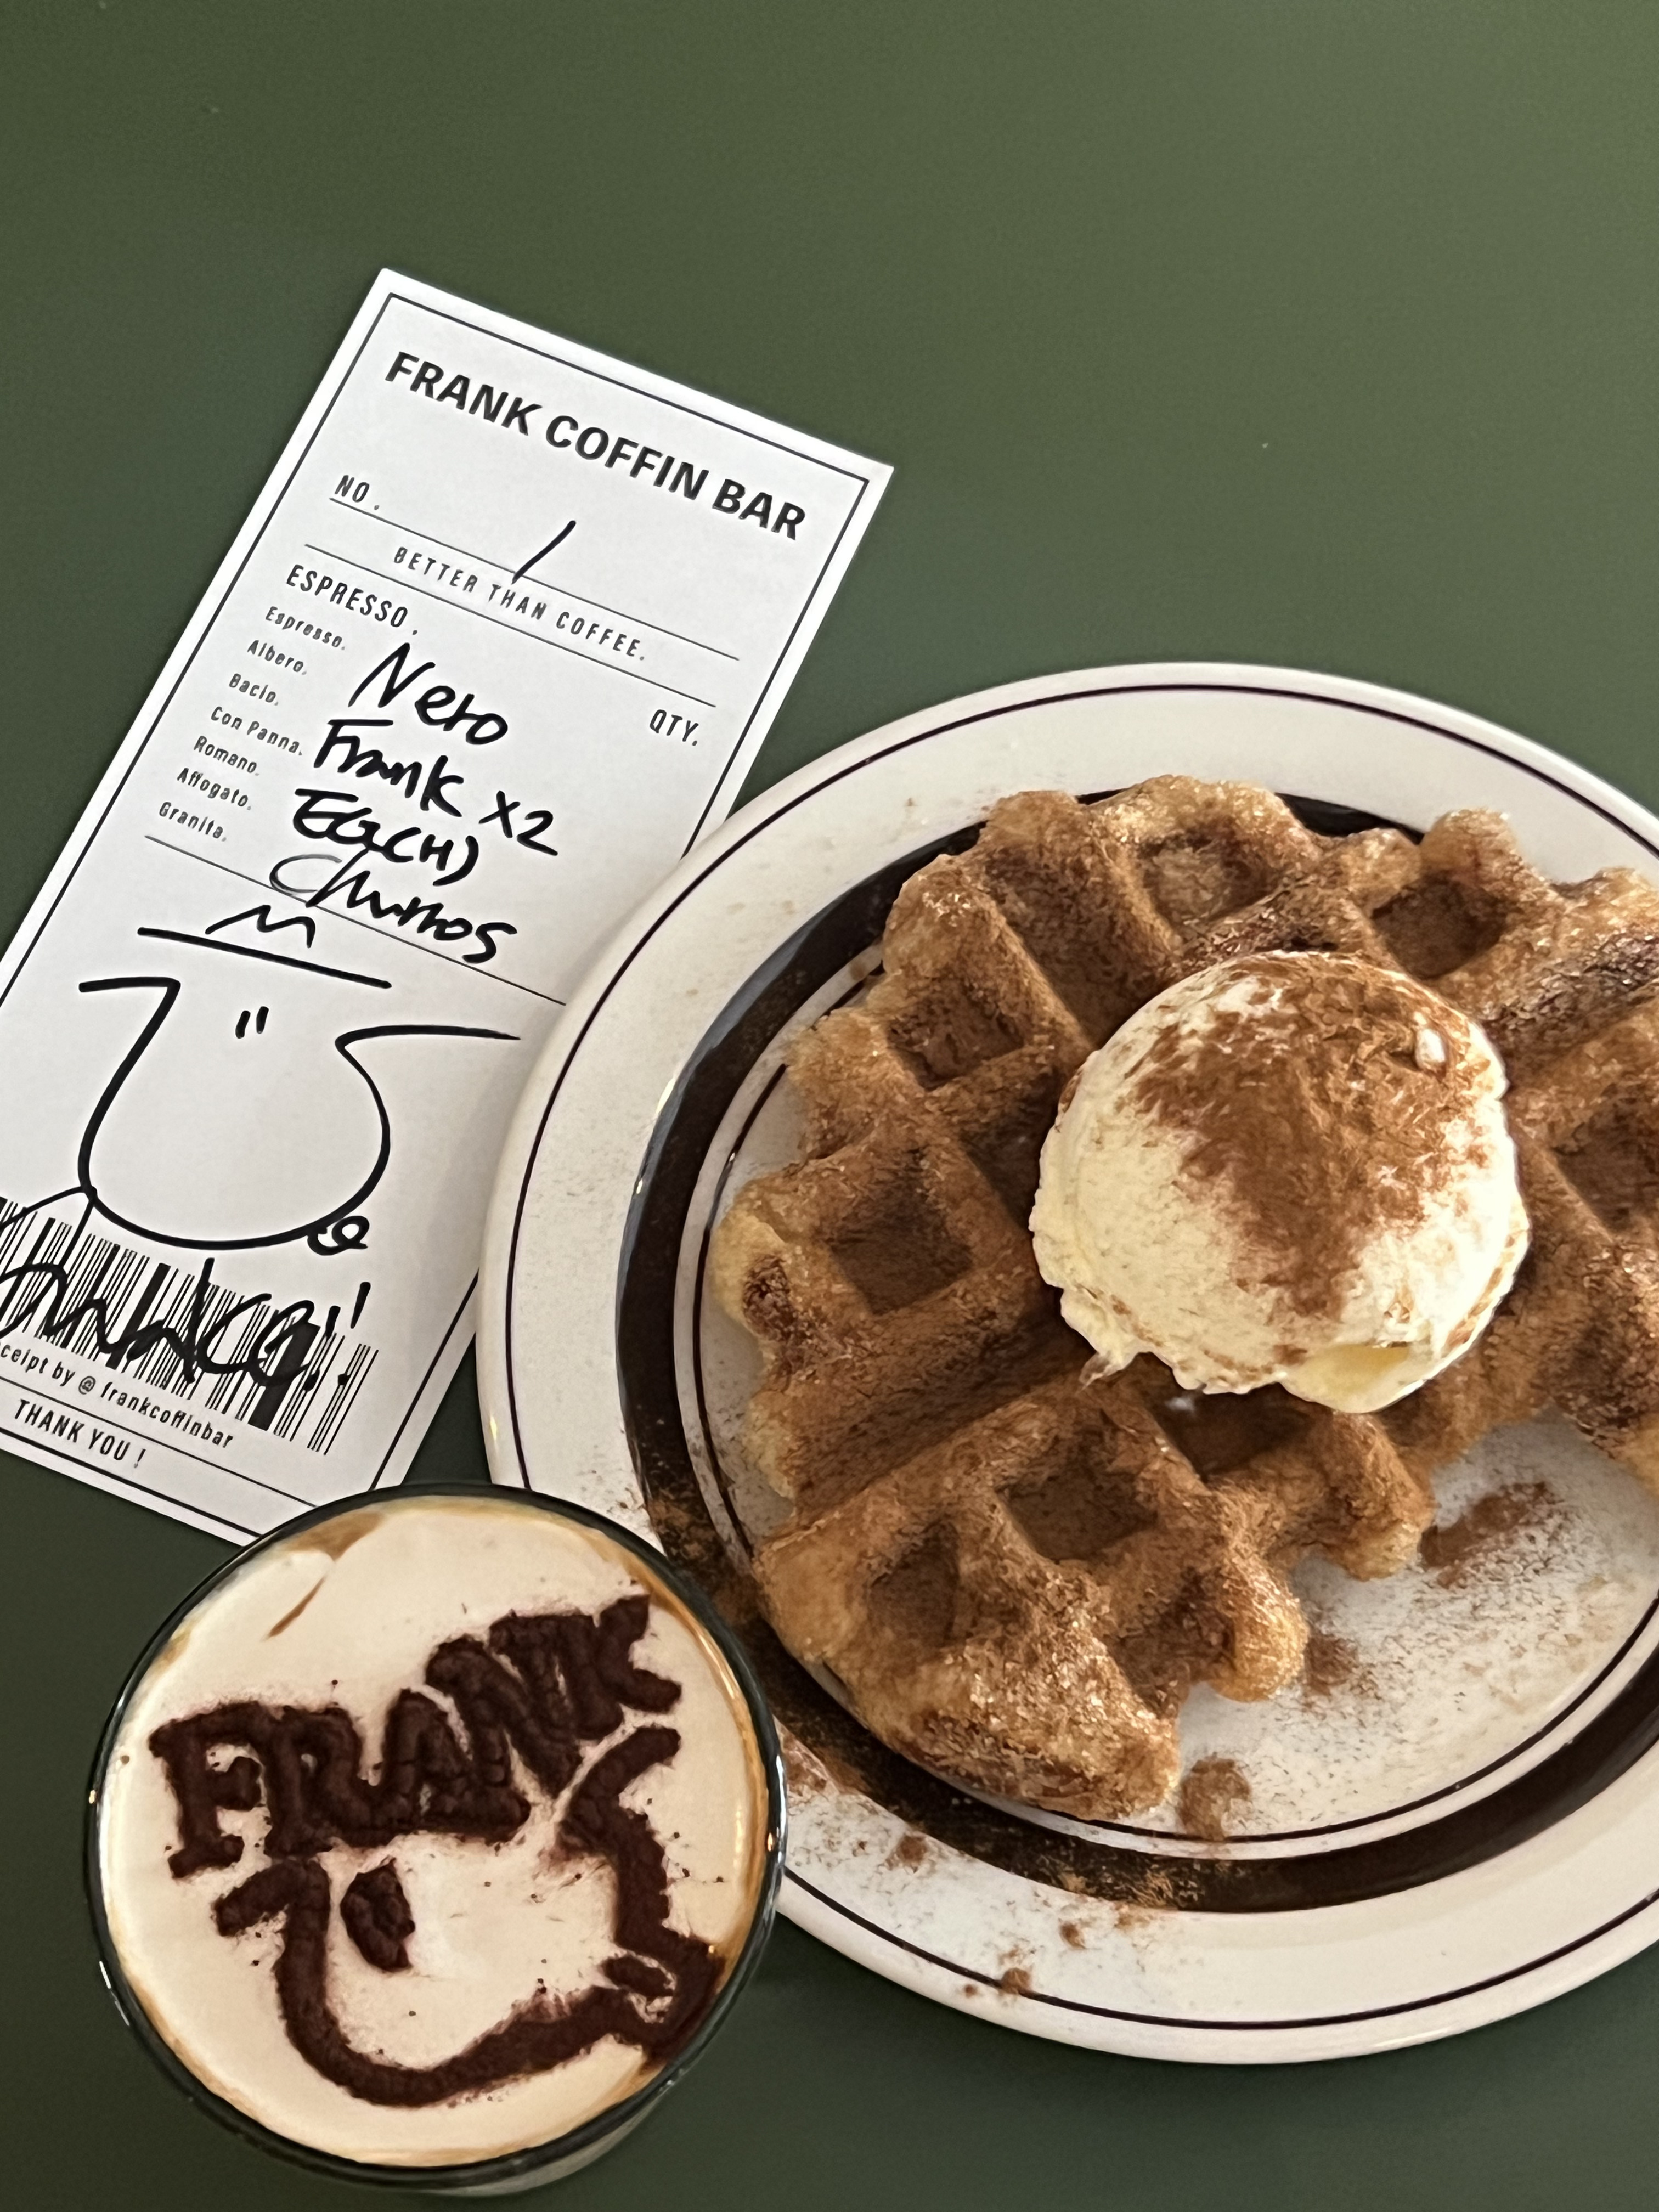 FRANK COFFIN BAR
NO. /
BETTER THAN COFFEE.
ESPRESSO. QTY.
Espresso.
Albero.
Bacio.
Con Panna.
Romano.
Affogato.
Granita.
Nero
Frank x2
EG(H)
Churros
by @frankcoffinbar
THANK YOU !
FRANK